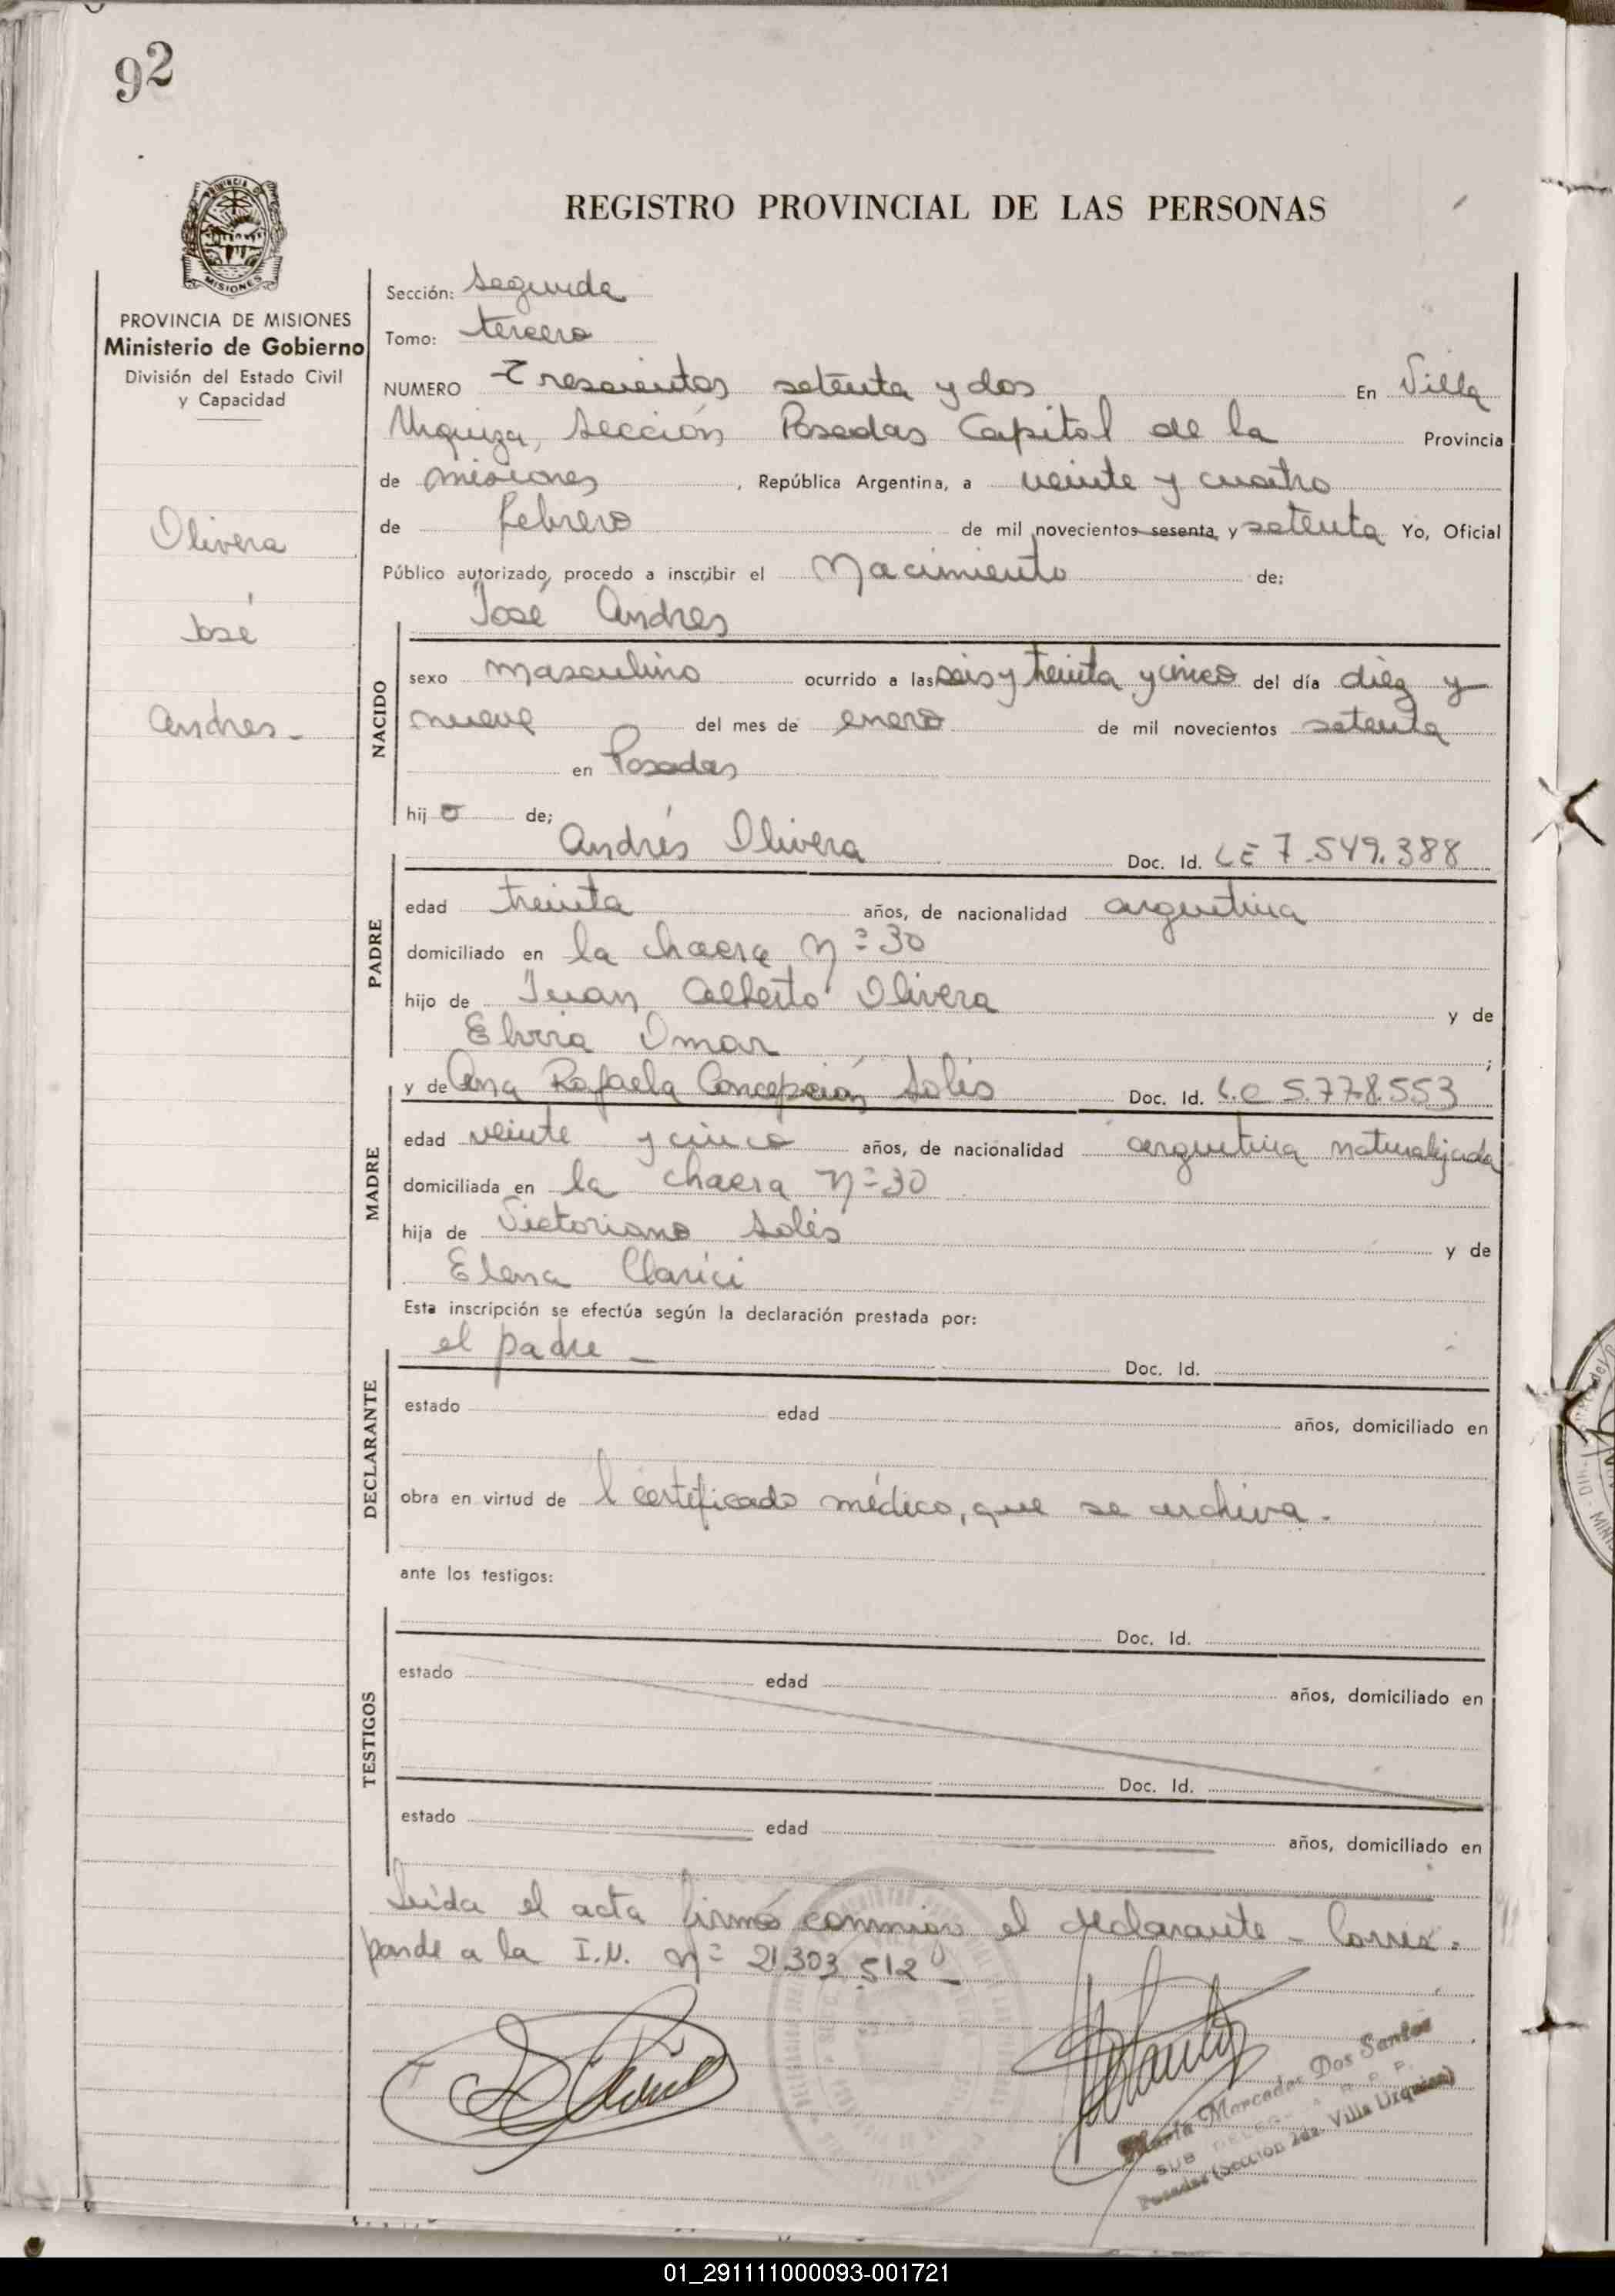 92
REGISTRO PROVINCIAL DE LAS PERSONAS
PROVINCIA DE
MISIONES
PROVINCIA DE MISIONES
Ministerio de Gobierno
División del Estado Civil
y Capacidad
Olivera
José
Andres -
Sección: Segunda
Tomo: tercero
NUMERO Trescientos setenta y dos En Villa
Urquiza, Sección Posadas Capital de la Provincia
de misiones, República Argentina, a veinte y cuatro
de febrero de mil novecientos sesenta y setenta Yo, Oficial
Público autorizado, procedo a inscribir el Nacimiento de:
José Andres
NACIDO
sexo masculino ocurrido a las seis y treinta y cinco del día diez y
nueve del mes de enero de mil novecientos setenta
en Posadas
hijo de;
Andrés Olivera Doc. Id. LE 7.549.388
PADRE
edad treinta años, de nacionalidad argentina
domiciliado en la chacra Nº 30
hijo de Juan Alberto Olivera y de
Elvira Omar ;
y de Ana Rafaela Concepción Solis Doc. Id. L.C 5.778.553
MADRE
edad veinte y cinco años, de nacionalidad argentina naturalizada
domiciliada en la chacra Nº 30
hija de Victoriano Solis y de
Elena Clarici
Esta inscripción se efectúa según la declaración prestada por:
el padre - Doc. Id.
DECLARANTE
estado edad años, domiciliado en
obra en virtud de l certificado médico, que se archiva.
ante los testigos:
Doc. Id.
TESTIGOS
estado edad años, domiciliado en
Doc. Id.
estado edad años, domiciliado en
Leída el acta firmó conmigo el declarante - Corres-
ponde a la I.N. Nº 21.303.512 -
María Mercedes Dos Santos
SUB R. P. P.
Posadas (Sección 2da. Villa Urquiza)
01_291111000093-001721